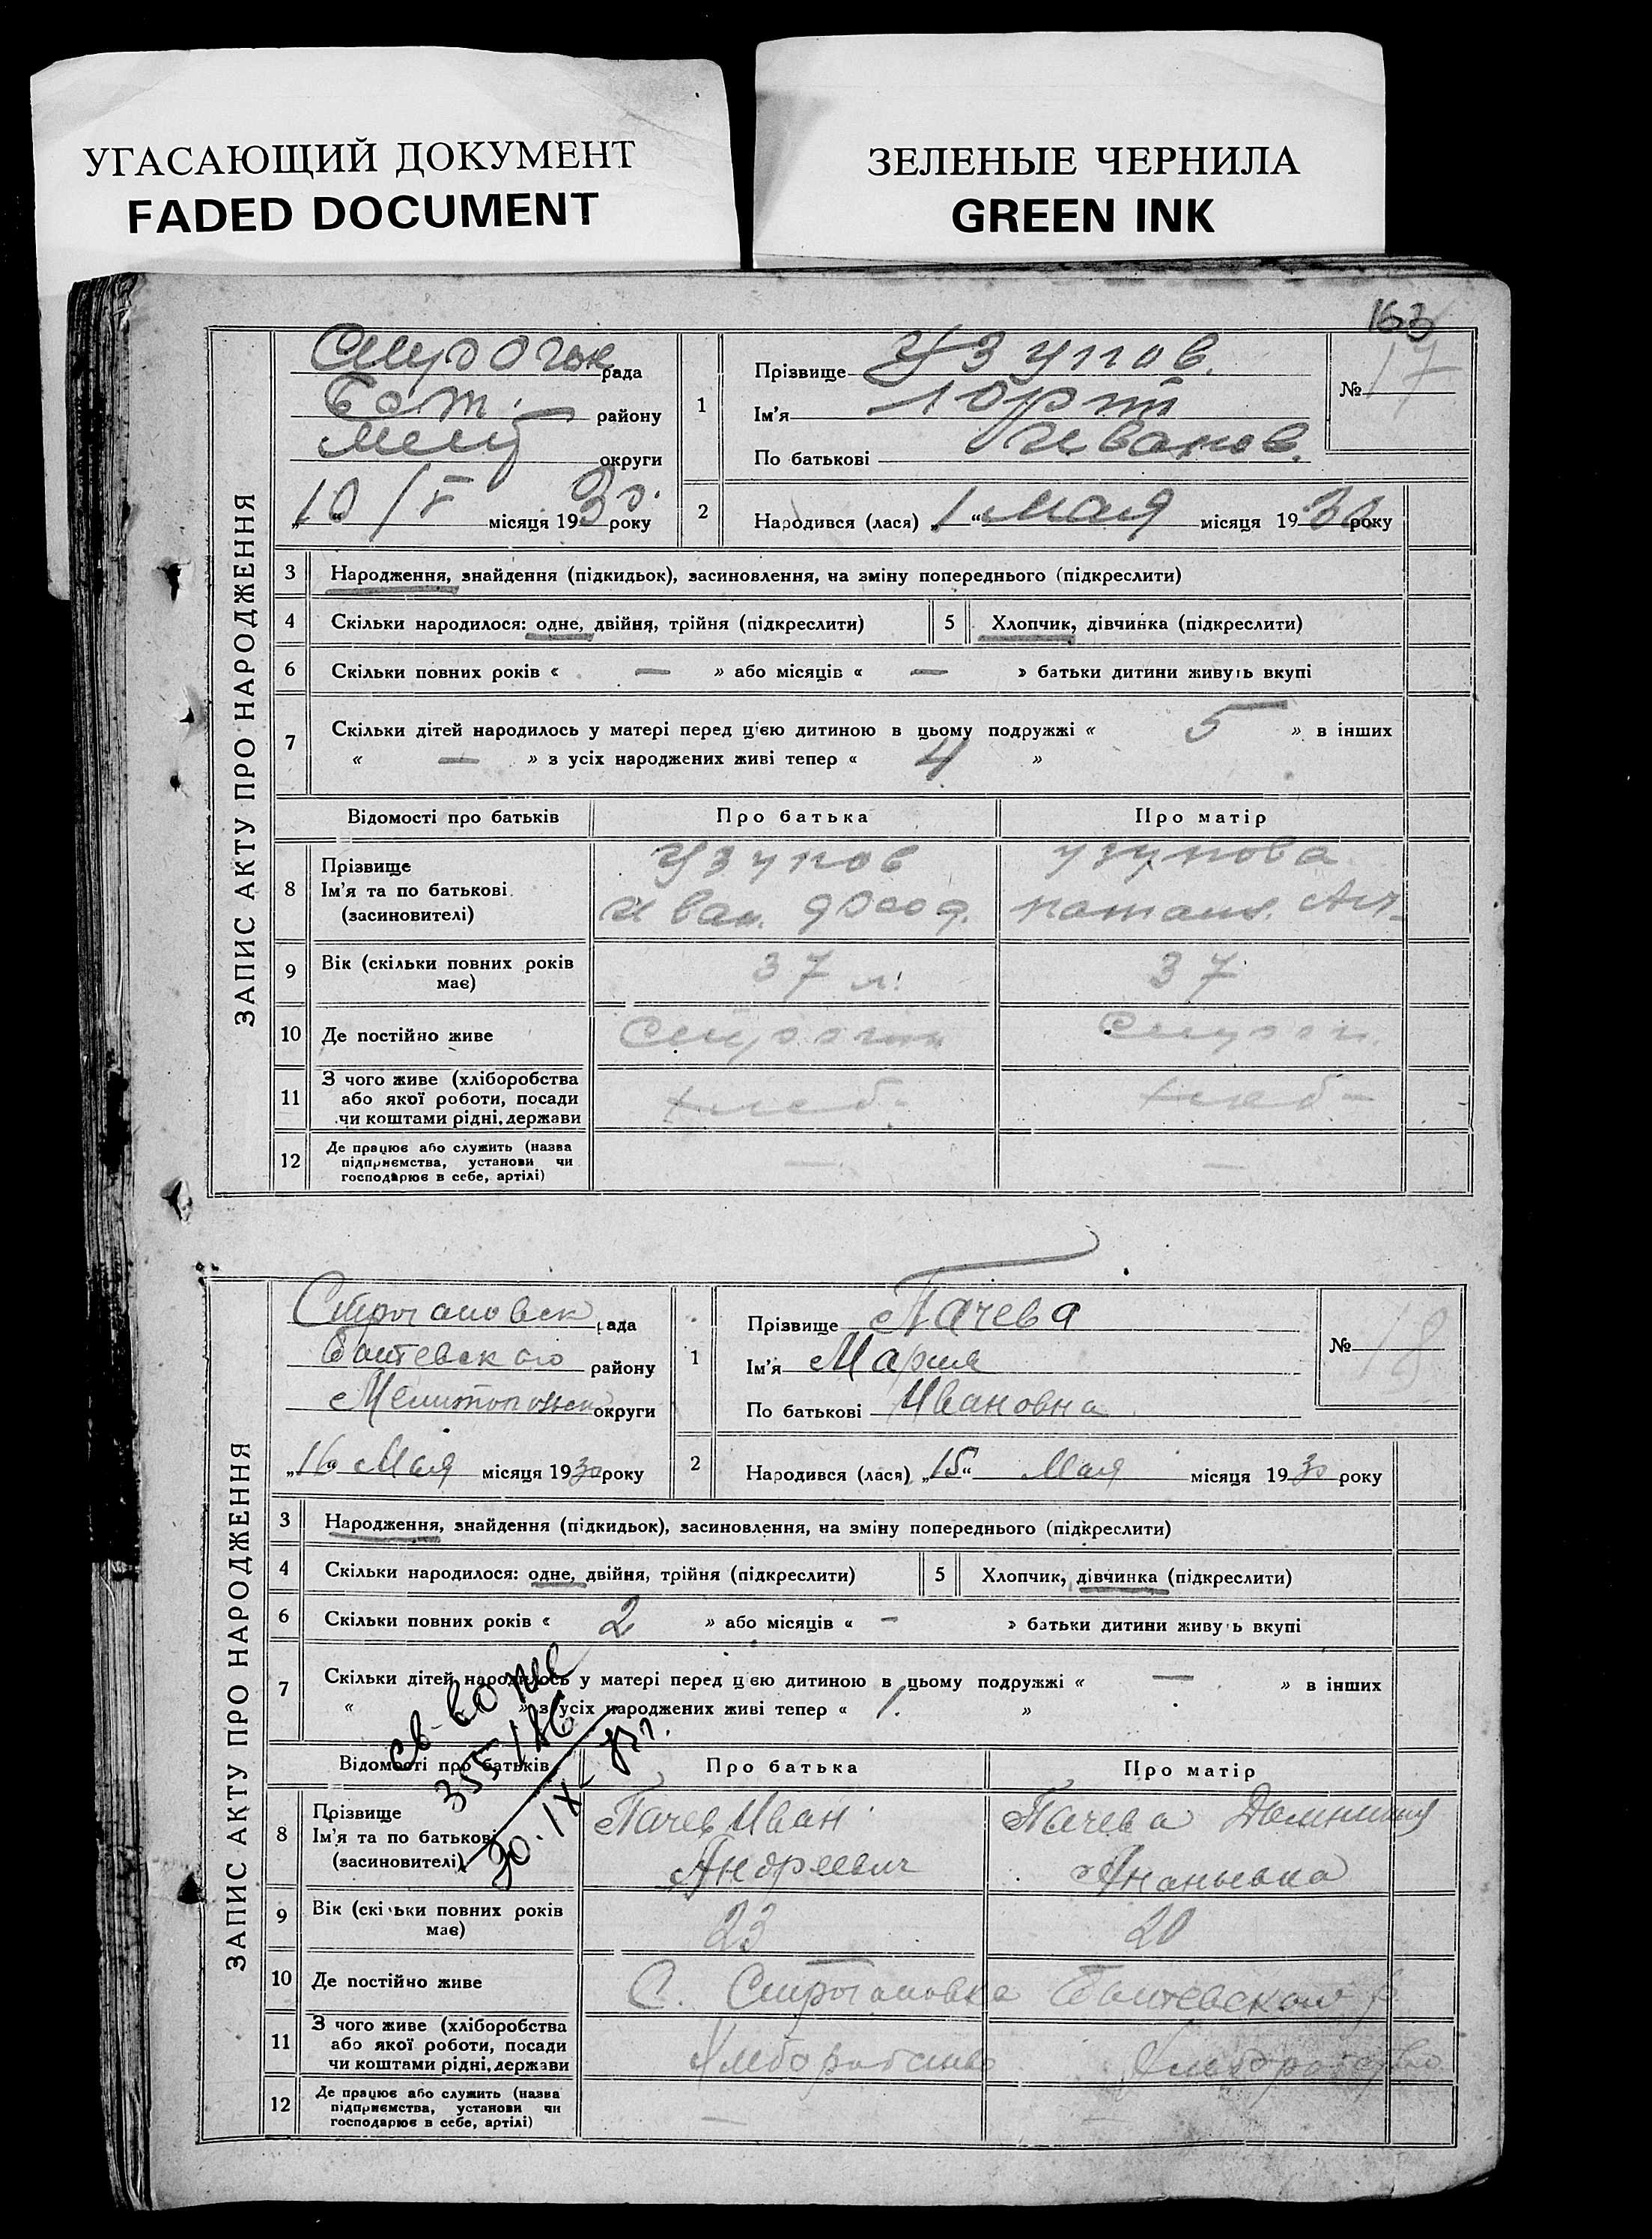 УГАСАЮЩИЙ ДОКУМЕНТ
FADED DOCUMENT
ЗЕЛЕНЫЕ ЧЕРНИЛА
GREEN INK
163
ЗАПИС АКТУ ПРО НАРОДЖЕННЯ
рада
Бот. району
Мелит округи
„10 / V місяця 1930 року
1
Прізвище Узунов.
Ім'я
По батькові Иванов.
№ 17
2
Народився (лася) „1“ мая місяця 1930 року
3 Народження, знайдення (підкидьок), засиновлення, на зміну попереднього (підкреслити)
4 Скільки народилося: одне, двійня, трійня (підкреслити)
5 Хлопчик, дівчинка (підкреслити)
6 Скільки повних років « — » або місяців « — » батьки дитини живуть вкупі
7 Скільки дітей народилось у матері перед цією дитиною в цьому подружжі « 5 » в інших
« — » з усіх народжених живі тепер « 4 »
Відомості про батьків Про батька Про матір
8 Прізвище Узунов Узунова
Ім'я та по батькові Иван.
(засиновителі)
9 Вік (скільки повних років має) 37 л. 37
10 Де постійно живе
11 З чого живе (хліборобства
або якої роботи, посади хлеб- хлеб-
чи коштами рідні, держави
12 Де працює або служить (назва
підприємства, установи чи — —
господарює в себе, артілі)
ЗАПИС АКТУ ПРО НАРОДЖЕННЯ
Строгановск рада
Ботевского району
Мелитопольск округи
„16“ Мая місяця 1930 року
1
Прізвище Пачева
Ім'я Мария
По батькові Ивановна
№ 18
2
Народився (лася) „15“ Мая місяця 1930 року
3 Народження, знайдення (підкидьок), засиновлення, на зміну попереднього (підкреслити)
4 Скільки народилося: одне, двійня, трійня (підкреслити)
5 Хлопчик, дівчинка (підкреслити)
6 Скільки повних років « 2 » або місяців « - » батьки дитини живуть вкупі
7 Скільки дітей народилось у матері перед цією дитиною в цьому подружжі « — » в інших
« » з усіх народжених живі тепер « 1. »
Відомості про батьків Про батька Про матір
8 Прізвище Пачев Иван Пачева
Ім'я та по батькові
(засиновителі) Андреевич Ананьевна
9 Вік (скільки повних років має) 23 20
10 Де постійно живе С. Строгановка Ботевского р.
11 З чого живе (хліборобства
або якої роботи, посади Хлеборобство Хлеборобство
чи коштами рідні, держави
12 Де працює або служить (назва
підприємства, установи чи — —
господарює в себе, артілі)